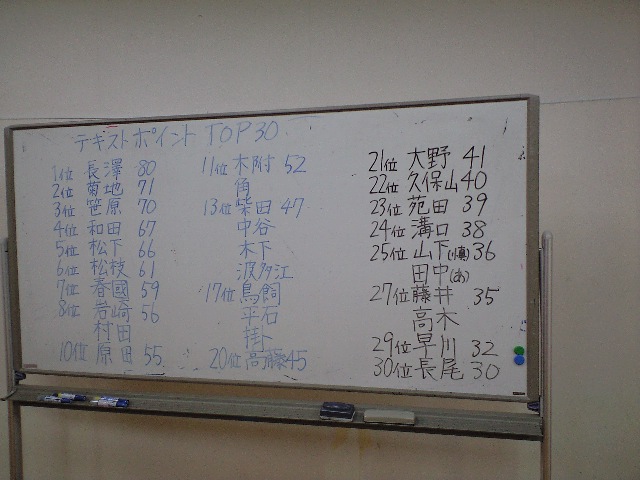 テキストポイント TOP30
1位 長澤 80
2位 菊地 71
3位 笹原 70
4位 和田 67
5位 松下 66
6位 松枝 61
7位 春國 59
8位 岩崎 56
村田
10位 原田 55
11位 木附 52
角
13位 柴田 47
中谷
木下
波多江
17位 鳥飼
平石
掛
20位 高藤 45
21位 大野 41
22位 久保山 40
23位 苑田 39
24位 溝口 38
25位 山下(順) 36
田中(あ)
27位 藤井 35
高木
29位 早川 32
30位 長尾 30